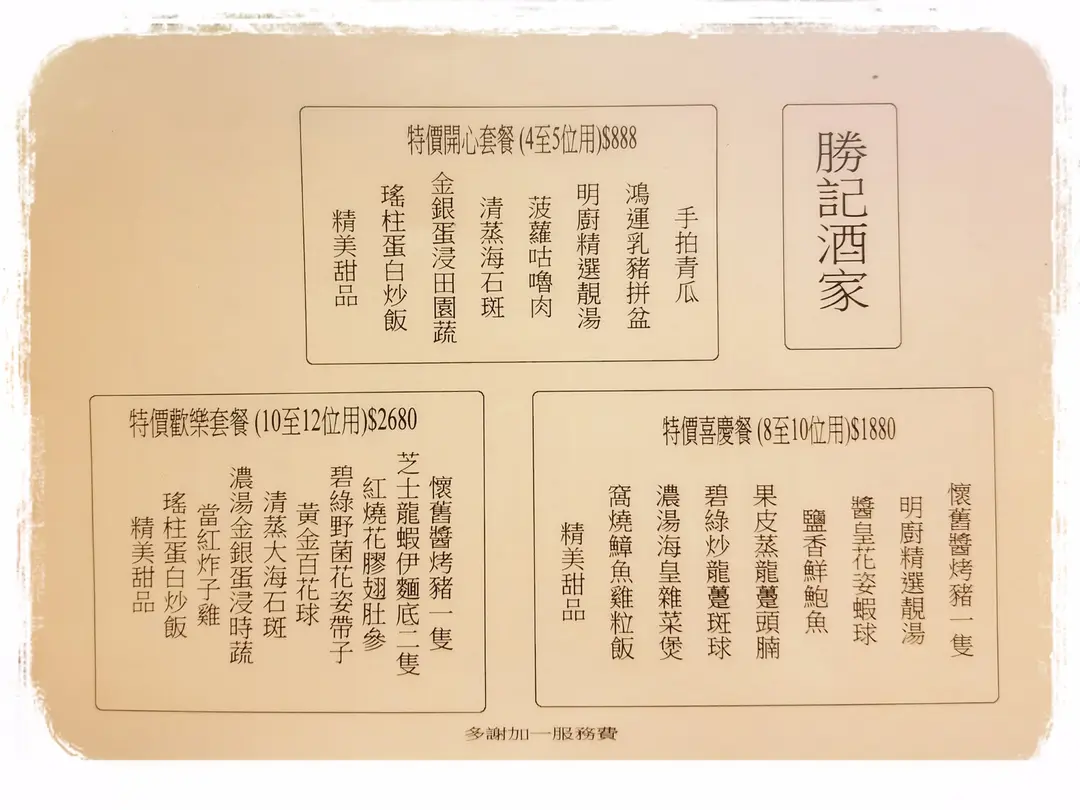 勝記酒家
特價開心套餐 (4至5位用)$888
手拍青瓜
鴻運乳豬拼盆
明廚精選靚湯
菠蘿咕嚕肉
清蒸海石斑
金銀蛋浸田園蔬
瑤柱蛋白炒飯
精美甜品
特價喜慶餐 (8至10位用)$1880
懷舊醬烤豬一隻
明廚精選靚湯
醬皇花姿蝦球
鹽香鮮鮑魚
果皮蒸龍躉頭腩
碧綠炒龍躉斑球
濃湯海皇雜菜煲
窩燒鱆魚雞粒飯
精美甜品
特價歡樂套餐 (10至12位用)$2680
懷舊醬烤豬一隻
芝士龍蝦伊麵底二隻
紅燒花膠翅肚參
碧綠野菌花姿帶子
黃金百花球
清蒸大海石斑
濃湯金銀蛋浸時蔬
當紅炸子雞
瑤柱蛋白炒飯
精美甜品
多謝加一服務費